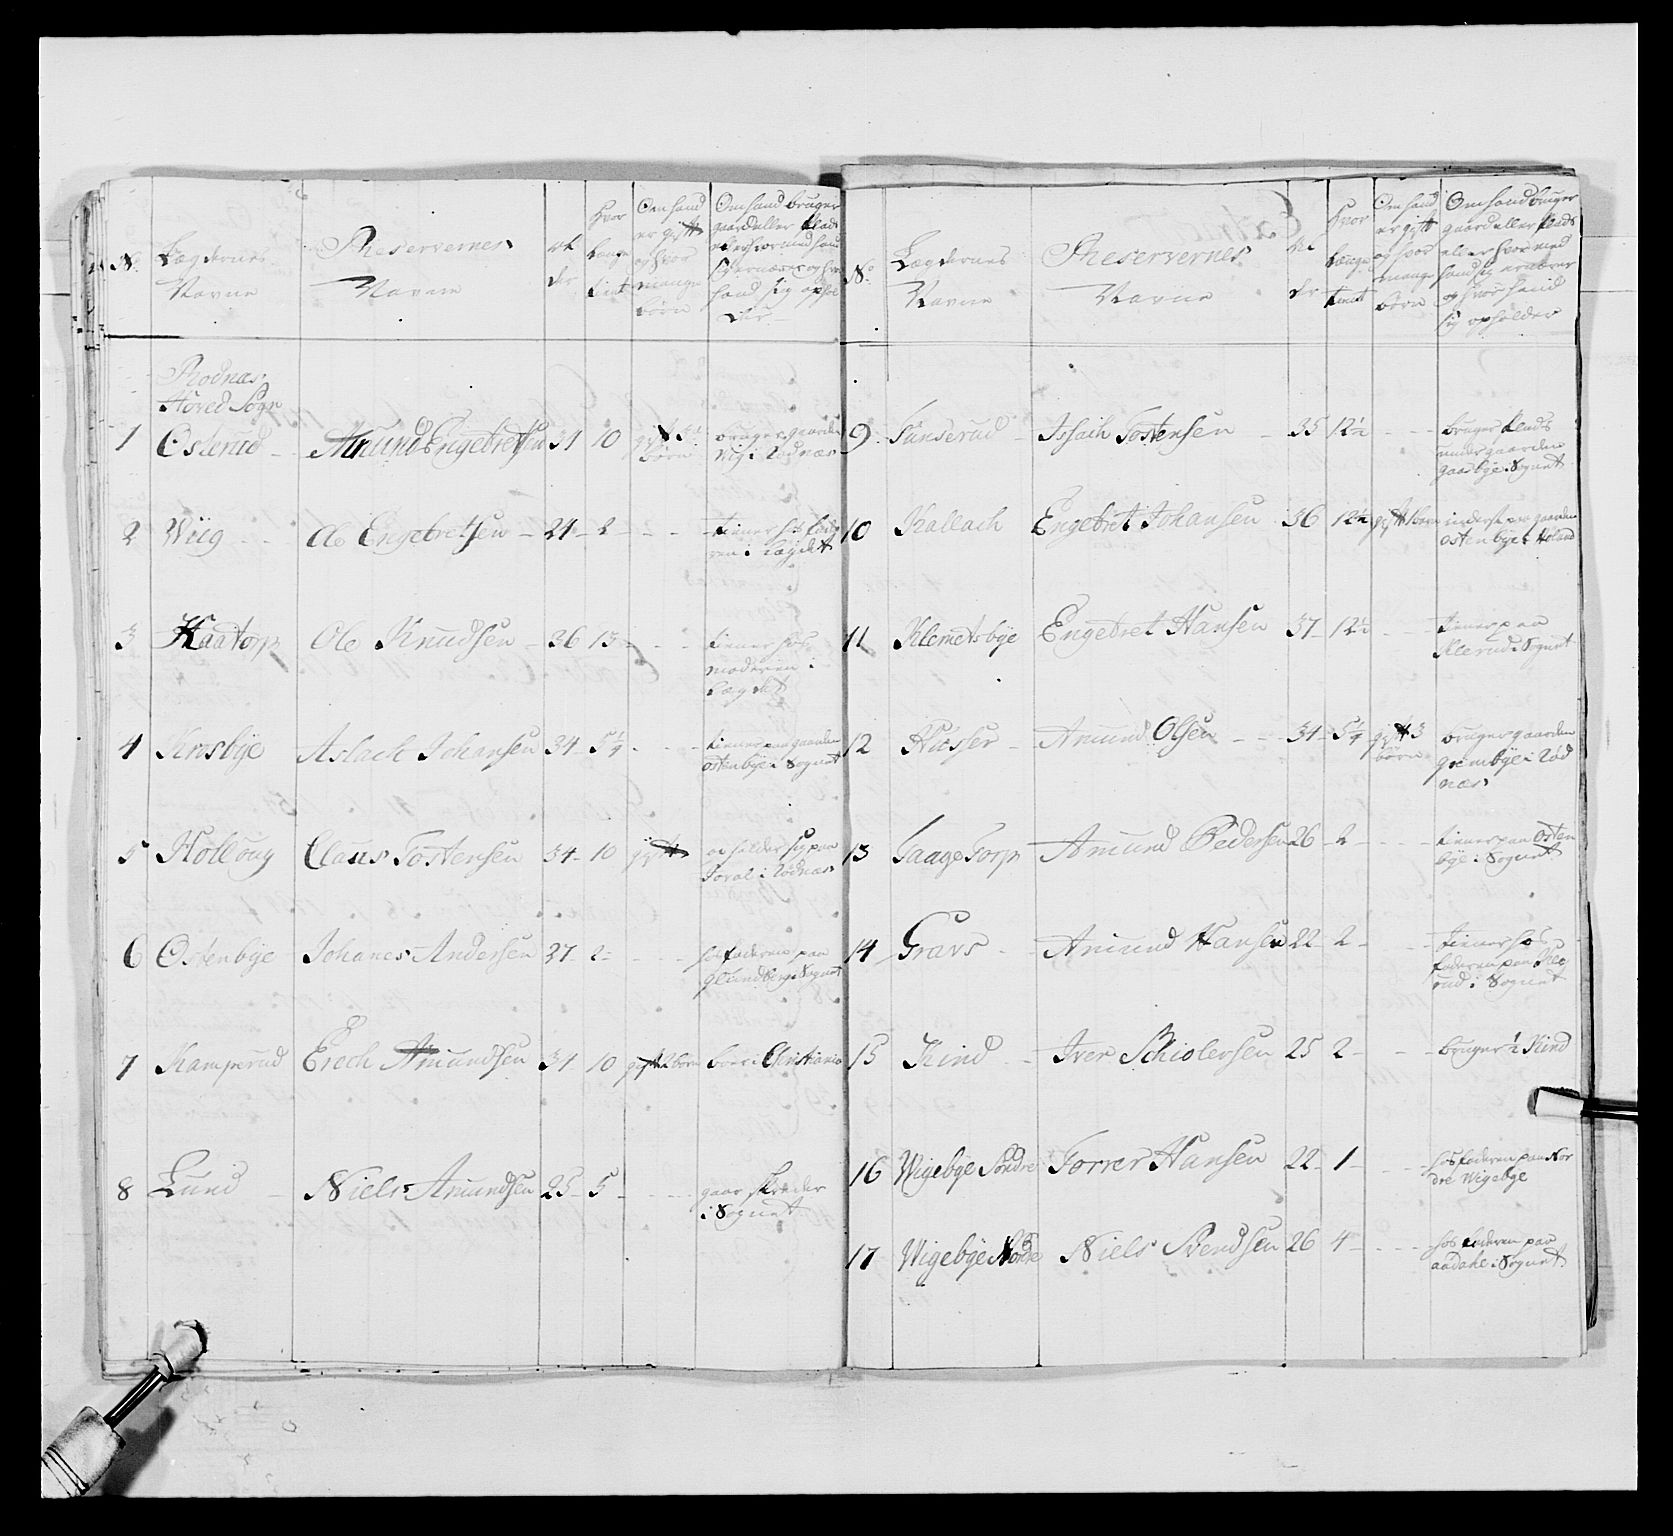 No.
Lægdernes
Navne
Reservernes
Navne
Al
der
Hvor
længe
tient
Om hand
er gift
og hvor
mange
børn
Om hand bruger
gaard eller Plads
eller hvormed hand
sig ernærer og hvor
hand sig ophol
der
Rodnæs
Hoved Sogn
1 Oserud Amund Engebretsen 31 10 gift 3
børn
bruger gaarden
Vig i Rødnæs
2 Wiig Ole Engebretsen 21 2 - -
tiener hos
i Lægdet
3 Kaatorp Ole Knudsen 26 13 - -
tiener hos
moderen i
Lægdet
4 Krosbÿe Aslach Johansen 34 5¼ - -
tiener paa gaarden
ostenbÿe i Sognet
5 Hollòug Claus Tostensen 34 10 gift
opholder sig paa
i Rødnæs
6 Ostenbÿe Johanes Andersen 27 2 - -
hos faderen paa
i Sognet
7 Kamperud Erech Amundsen 31 10 gift 2 børn boer i Christiania
8 Lund Niels Amundsen 25 5 - -
gaar skreder
i Sognet
No.
Lægdernes
Navne
Reservernes
Navne
Al
der
Hvor
længe
tient
Om hand
er gift
og hvor
mange
børn
Om hand bruger
gaard eller Plads
eller hvor med
hand sig ernærer
og hvor hand
sig opholder
9 Funserud Issach Tostensen 35 12½ - -
bruger Plads
under gaarden
i Sognet
10 Kallach Engebret Johansen 36 12½ gift 1 barn
inderst paa gaarden
ostenbÿe i Høland
11 Klemetsbÿe Engebret Hansen 37 12½ - -
tiener paa
Klerud i Sognet
12 Huser Amund Olsen 31 5¼ gift 3
børn
bruger gaarden
grimbÿe i Rød
næs
13 Taage Torp Amund Pedersen 26 2 - -
tiener paa Osten
bÿe i Sognet
14 Gravs Amund Hansen 22 2 - -
tiener hos
faderen paa Kle
rud i Sognet
15 Kind Iver Schiolersen 25 2 - - bruger ½ Kind
16 Wigebÿe Søndre Torrer Hansen 22 1 - -
hos faderen paa Nor
dre Wigebÿe
17 Wigebÿe Nordre Niels Svendsen 26 4 - -
hos faderen paa
aadahl i Sognet